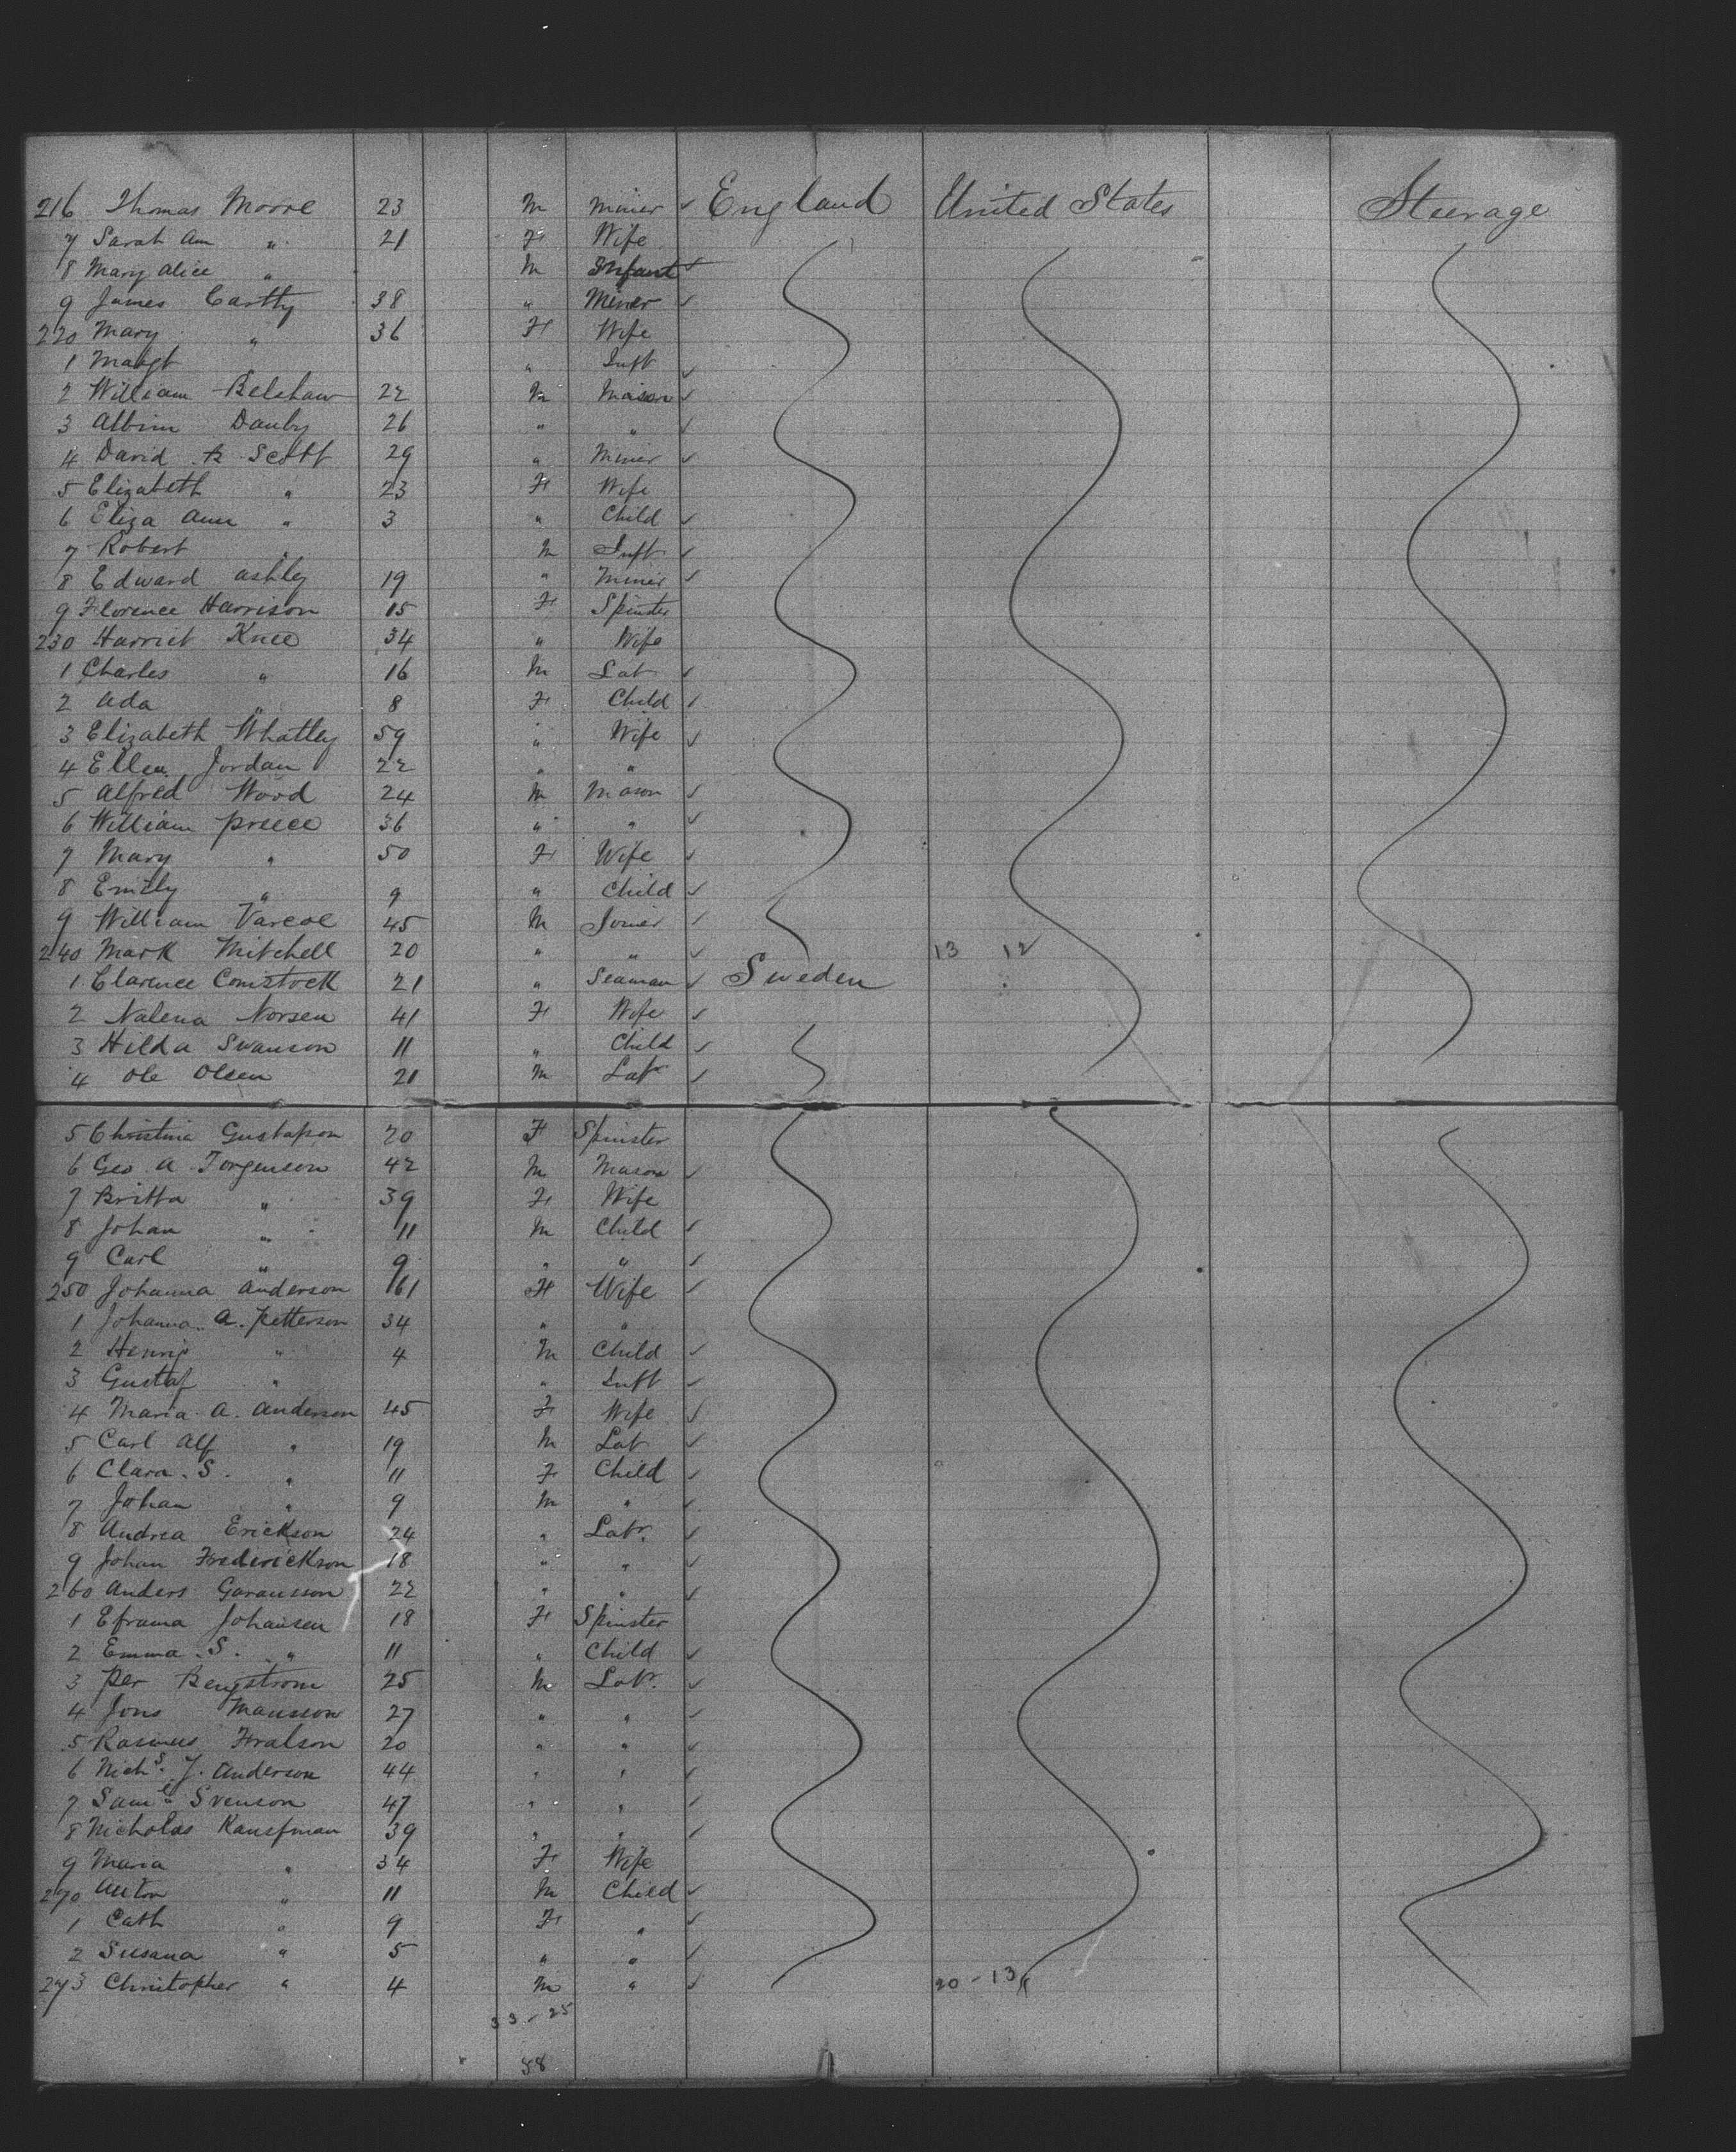 216 Thomas Moore 23 M Miner ✓ England United States Steerage
7 Sarah Ann " 21 F Wife
8 Mary Alice " M Infant ✓
9 James Cartty 38 " Miner ✓
220 Mary " 36 F Wife
1 Margt " Inft ✓
2 William Belshaw 22 M Mason ✓
3 Albinn Danby 26 " " ✓
4 David R Scott 29 " Miner ✓
5 Elizabeth " 23 F Wife
6 Eliza Ann " 3 " Child ✓
7 Robert " M Inft ✓
8 Edward Ashley 19 " Miner ✓
9 Florence Harrison 15 F Spinster
230 Harriet Knee 34 " Wife
1 Charles " 16 M Lab ✓
2 Ada " 8 F Child ✓
3 Elizabeth Whatley 59 " Wife ✓
4 Ellen Jordan 22 " "
5 Alfred Wood 24 M Mason ✓
6 William Preece 36 " " ✓
7 Mary " 50 F Wife ✓
8 Emily " 9 " Child ✓
9 William Varcoe 45 M Joiner ✓
240 Mark Mitchell 20 " " ✓ 13 12
1 Clarence Comstock 21 " Seaman ✓ Sweden
2 Nalena Norsen 41 F Wife ✓
3 Hilda Swanson 11 " Child ✓
4 Ole Olsen 21 M Labr ✓
5 Christina Gustafson 20 F Spinster
6 Geo A Torgenson 42 M Mason ✓
7 Britta " 39 F Wife
8 Johan " 11 M Child ✓
9 Carl " 9 " " ✓
250 Johanna Anderson 61 F Wife ✓
1 Johanna A. Petterson 34 " "
2 Henrig " 4 M Child ✓
3 Gustaf " " Inft ✓
4 Maria A. Anderson 45 F Wife ✓
5 Carl Alf " 19 M Lab ✓
6 Clara S. " 11 F Child ✓
7 Johan " 9 M " ✓
8 Andrea Erickson 24 " Labr. ✓
9 Johan Frederickson 18 " " ✓
260 Anders Goransson 22 " " ✓
1 Eframa Johansen 18 F Spinster
2 Emma S. " 11 " Child ✓
3 Per Bengstrom 25 M Labr. ✓
4 Jons Mansson 27 " " ✓
5 Rasmus Fralson 20 " " ✓
6 Nichs. J. Anderson 44 " " ✓
7 Saml Svenson 47 " " ✓
8 Nicholas Kaufman 39 " " ✓
9 Maria " 34 F Wife
270 Anton " 11 M Child ✓
1 Cath " 9 F " ✓
2 Susana " 5 " " ✓
273 Christopher " 4 M " ✓ 20 - 13
33 - 25
58